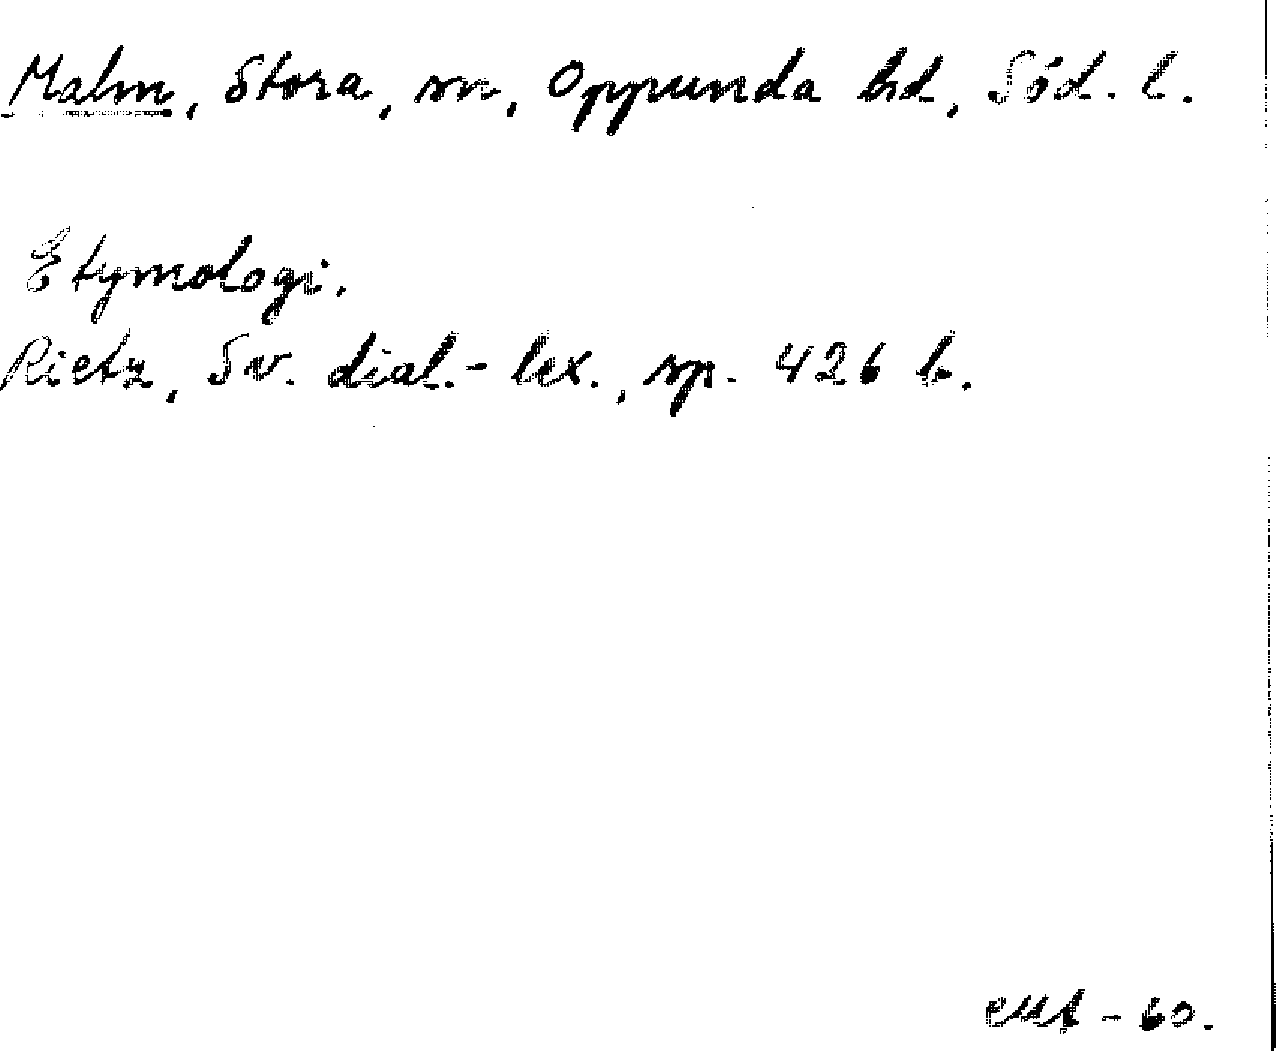 Malm, Stora, sn, Oppunda hd, Söd. l.
Etymologi.
Rietz, Sv. dial.-lex., sp. 426 b.
-60.